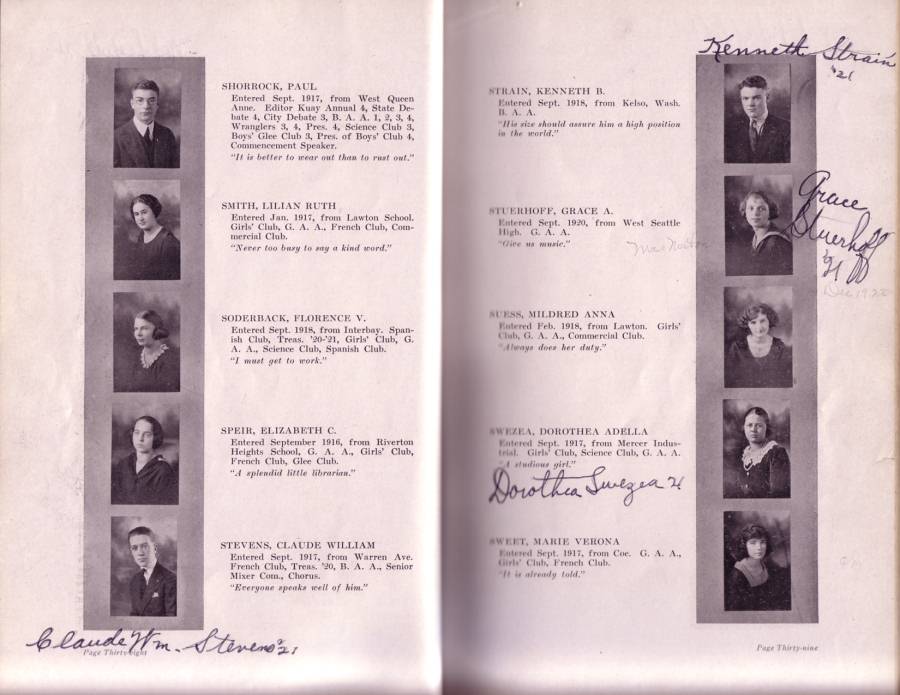 SHORROCK, PAUL
Entered Sept. 1917, from West Queen
Anne. Editor Kuay Annual 4, State De-
bate 4, City Debate 3, B. A. A. 1, 2, 3, 4,
Wranglers 3, 4, Pres. 4, Science Club 3,
Boys' Glee Club 3, Pres. of Boys' Club 4,
Commencement Speaker.
"It is better to wear out than to rust out."
SMITH, LILIAN RUTH
Entered Jan. 1917, from Lawton School.
Girls' Club, G. A. A., French Club, Com-
mercial Club.
"Never too busy to say a kind word."
SODERBACK, FLORENCE V.
Entered Sept. 1918, from Interbay. Span-
ish Club, Treas. '20-'21, Girls' Club, G.
A. A., Science Club, Spanish Club.
"I must get to work."
SPEIR, ELIZABETH C.
Entered September 1916, from Riverton
Heights School, G. A. A., Girls' Club,
French Club, Glee Club.
"A splendid little librarian."
STEVENS, CLAUDE WILLIAM
Entered Sept. 1917, from Warren Ave.
French Club, Treas. '20, B. A. A., Senior
Mixer Com., Chorus.
"Everyone speaks well of him."
Claude Wm. Stevens '21
Page Thirty-eight
Kenneth Strain
'21
STRAIN, KENNETH B.
Entered Sept. 1918, from Kelso, Wash.
B. A. A.
"His size should assure him a high position
in the world."
STUERHOFF, GRACE A.
Entered Sept. 1920, from West Seattle
High. G. A. A.
"Give us music."
Grace
Stuerhoff
'21
Dec 1922
SUESS, MILDRED ANNA
Entered Feb. 1918, from Lawton. Girls'
Club, G. A. A., Commercial Club.
"Always does her duty."
SWEZEA, DOROTHEA ADELLA
Entered Sept. 1917, from Mercer Indus-
trial. Girls' Club, Science Club, G. A. A.
"A studious girl."
Dorothea Swezea 21
SWEET, MARIE VERONA
Entered Sept. 1917, from Coe. G. A. A.,
Girls' Club, French Club.
"It is already told."
Page Thirty-nine